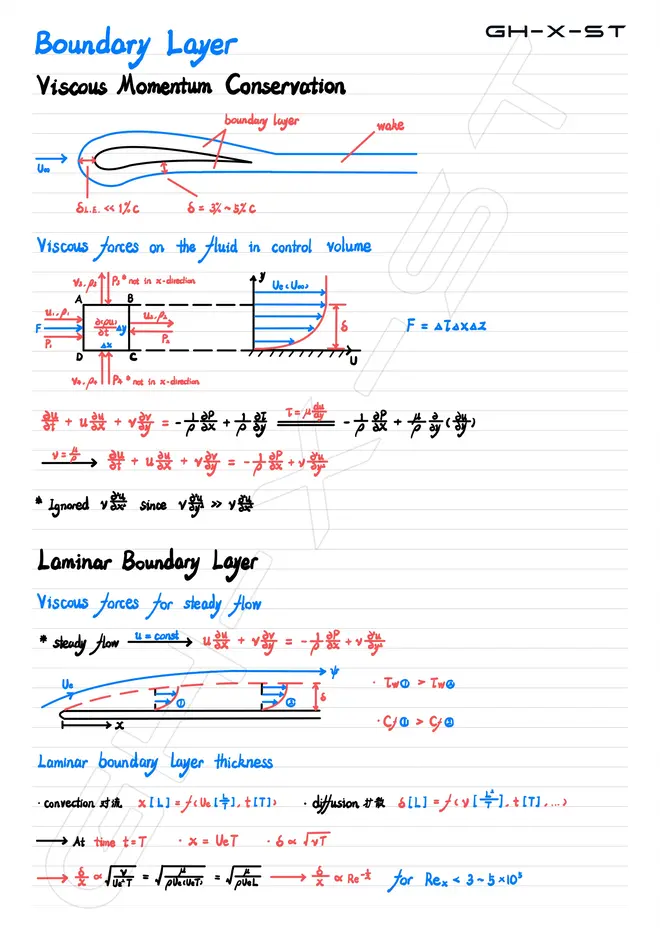 GH-X-ST
Boundary Layer
Viscous Momentum Conservation
boundary layer
wake
U∞
δL.E. << 1%C
δ = 3% ~ 5%C
Viscous forces on the fluid in control volume
v3, ρ3 P3 * not in x-direction
A B
u1, ρ1
F
P1
∂(ρu)/∂t Δy
Δx
u2, ρ2
P2
D C
v4, ρ4 P4 * not in x-direction
y
Ue(U∞)
δ
U
F = ΔτΔxΔz
∂u/∂t + u ∂u/∂x + v ∂v/∂y = - 1/ρ ∂P/∂x + 1/ρ ∂τ/∂y τ = μ du/dy - 1/ρ ∂P/∂x + μ/ρ ∂/∂y (∂u/∂y)
ν = μ/ρ ⟶ ∂u/∂t + u ∂u/∂x + v ∂v/∂y = - 1/ρ ∂P/∂x + ν ∂²u/∂y²
* Ignored ν ∂²u/∂x² since ν ∂²u/∂y² >> ν ∂²u/∂x²
Laminar Boundary Layer
Viscous forces for steady flow
* steady flow u = const ⟶ u ∂u/∂x + v ∂v/∂y = - 1/ρ ∂P/∂x + ν ∂²u/∂y²
Ue
ψ
① ② δ
x
· τw① > τw②
· Cf① > Cf②
Laminar boundary layer thickness
· convection 对流 x[L] = f(Ue[L/T], t[T]) · diffusion 扩散 δ[L] = f(ν[L²/T], t[T], ...)
⟶ At time t = T · x = UeT · δ ∝ √νT
⟶ δ/x ∝ √(ν/Ue²T) = √(μ/ρUe(UeT)) = √(μ/ρUeL) ⟶ δ/x ∝ Re^-½ for Rex < 3 ~ 5 × 10⁵
GH-X-ST